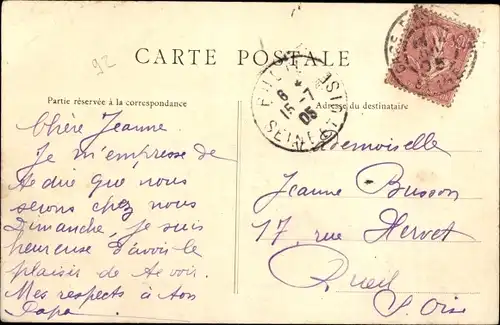 92
CARTE POSTALE
Partie réservée à la correspondance
Adresse du destinataire
Chère Jeanne
Je m'empresse de
te dire que nous
serons chez nous
Dimanche, je suis
heureuse d'avoir le
plaisir de te voir.
Mes respects à ton
Papa
15 7
05
SEINE
Mademoiselle
Jeanne Busson
17, rue Hervet
Rueil
S. Oise